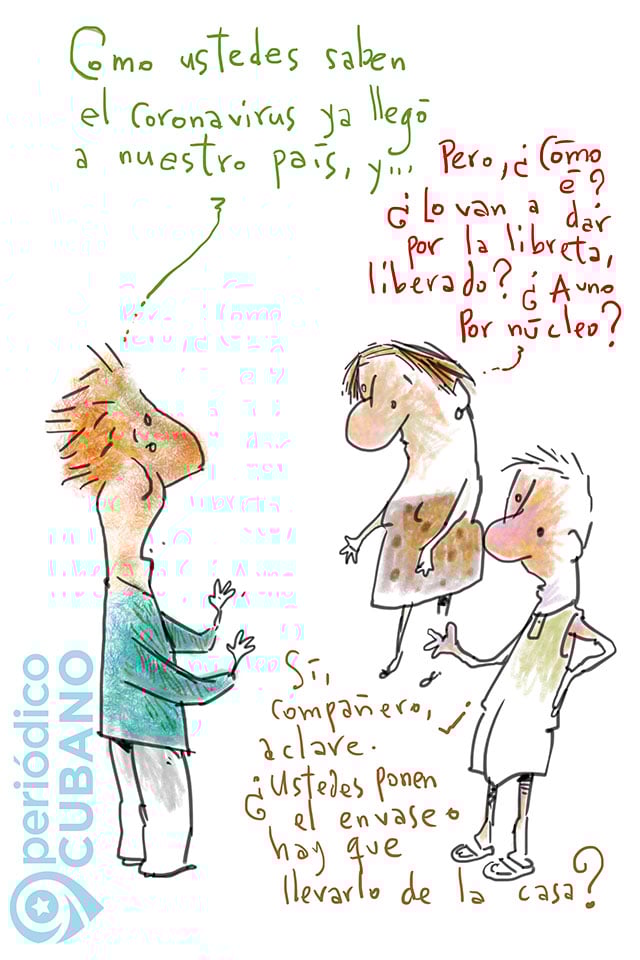 Como ustedes saben
el coronavirus ya llegó
a nuestro país, y...
Pero, ¿Cómo
é?
¿Lo van a dar
por la libreta,
liberado? ¿A uno
por núcleo?
Sí,
compañero,
aclare.
¿Ustedes ponen
el envase o
hay que
llevarlo de la casa?
periódico
CUBANO